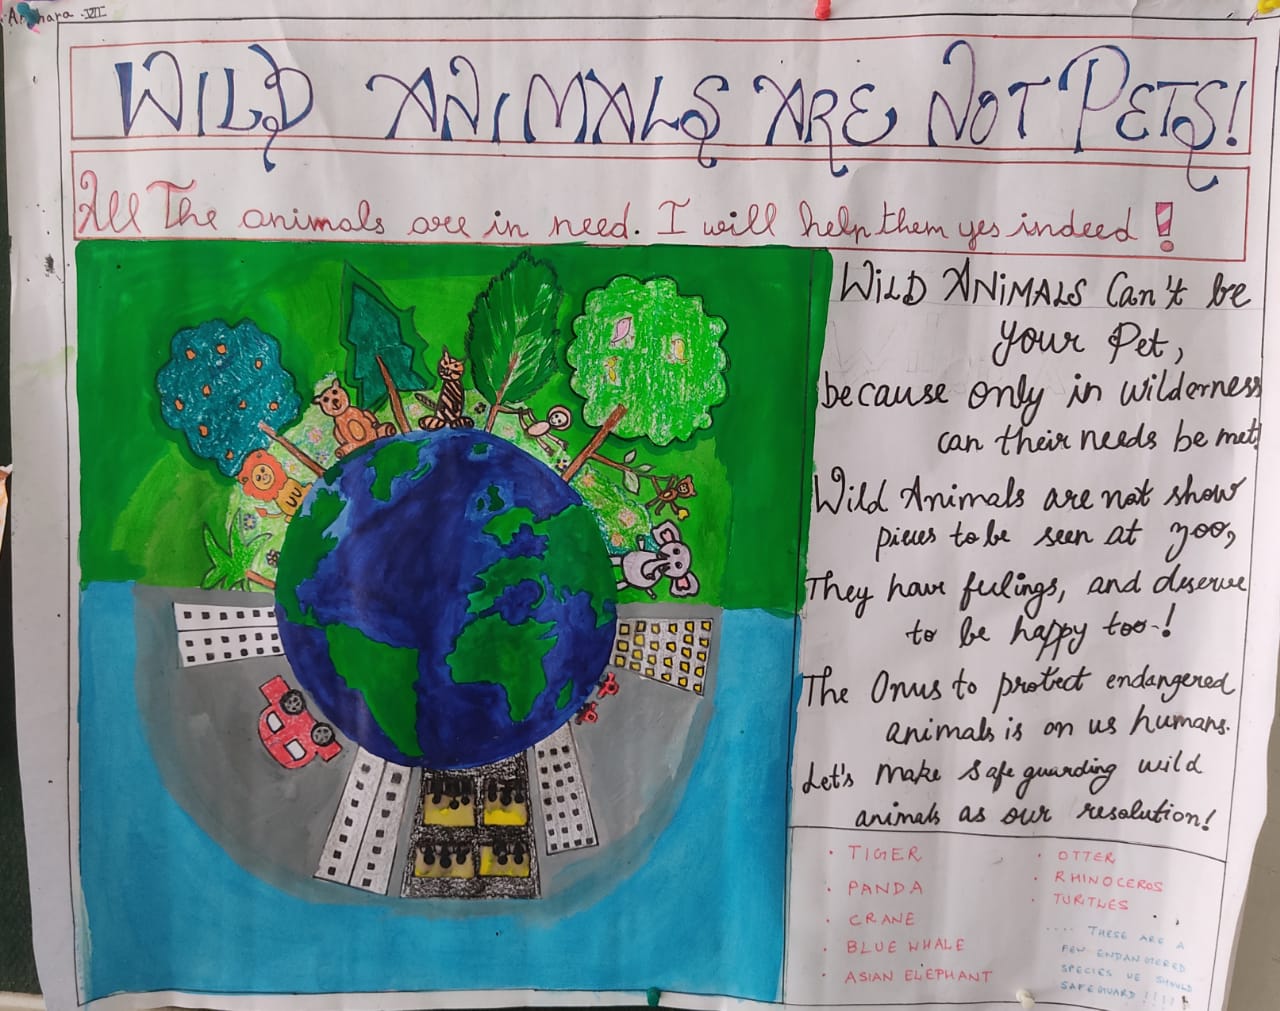 VII
WILD ANIMALS ARE NOT PETS!
All The animals are in need. I will help them yes indeed!
WILD ANIMALS Can't be
your Pet,
because only in wilderness
can their needs be met!
Wild Animals are not show
pieces to be seen at zoo,
They have feelings, and deserve
to be happy too-!
The Onus to protect endangered
animals is on us humans.
Let's make safe guarding wild
animals as our resolution!
• TIGER
• PANDA
• CRANE
• BLUE WHALE
• ASIAN ELEPHANT
• OTTER
• RHINOCEROS
• TURTLES
.... THESE ARE A
FEW ENDANGERED
SPECIES WE SHOULD
SAFEGUARD !!!!